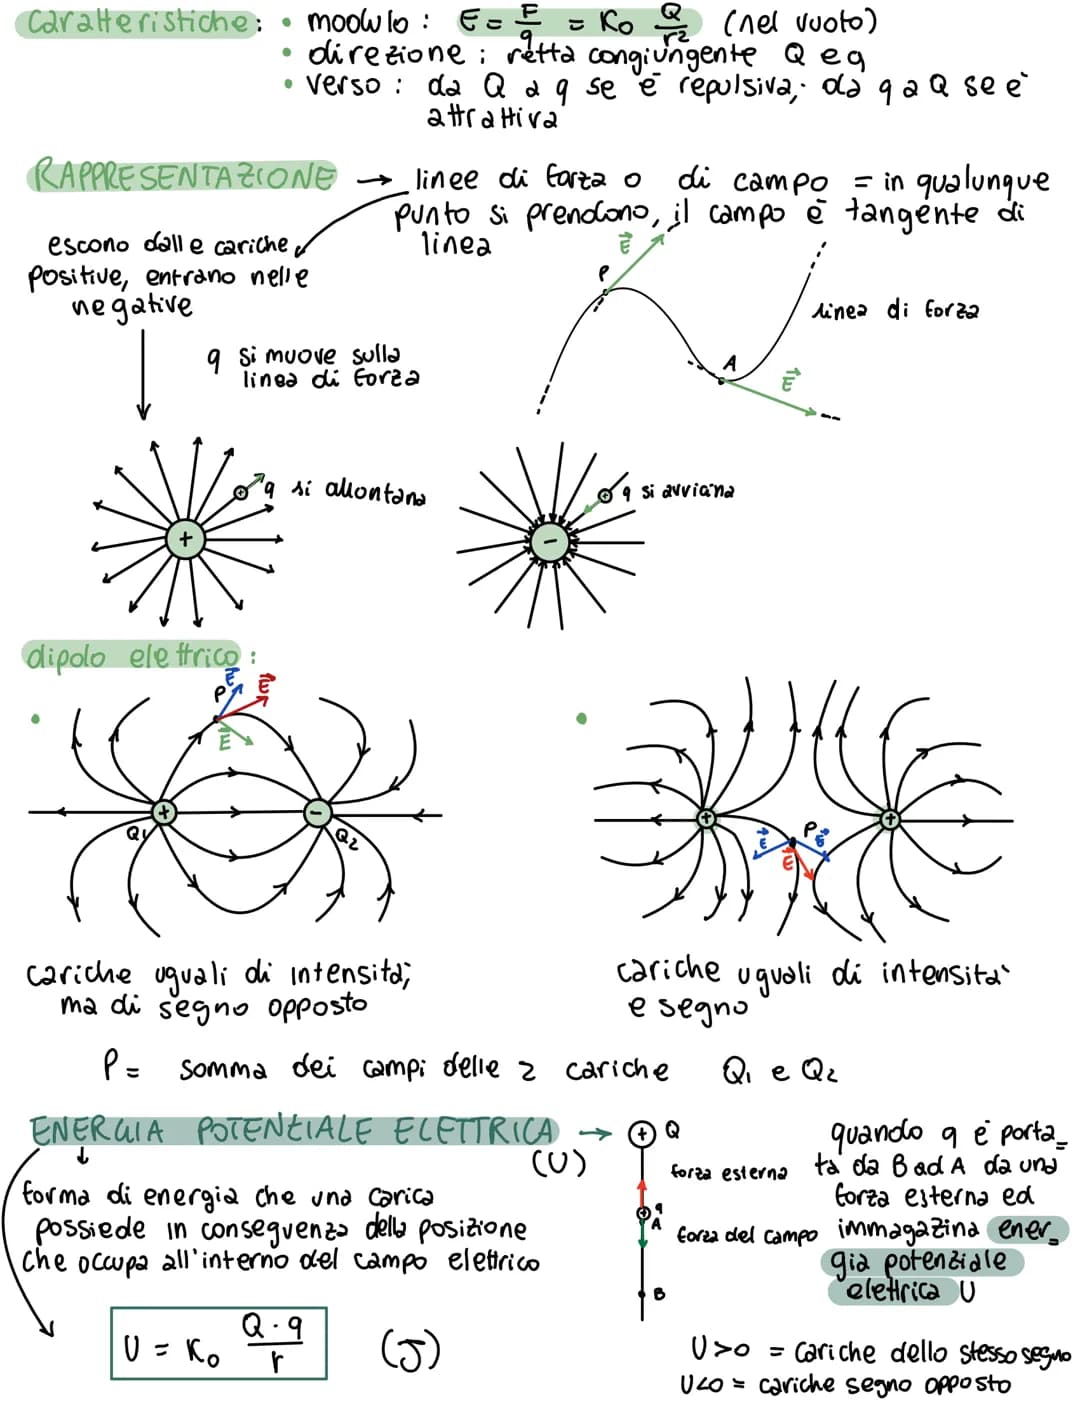 Caratteristiche: • modulo : E = F/q = K₀ Q/r² (nel vuoto)
• direzione : retta congiungente Q e q
• verso : da Q a q se è repulsiva, da q a Q se è
attrattiva
RAPPRESENTAZIONE → linee di forza o di campo = in qualunque
punto si prendono, il campo è tangente di
linea
escono dalle cariche
positive, entrano nelle
negative
E⃗
P
linea di forza
q si muove sulla
linea di forza
A
E⃗
q si allontana
q si avvicina
+
-
dipolo elettrico :
P E⃗ E⃗
E⃗
+ -
Q₁ Q₂
+ P +
E⃗ E⃗
E⃗
cariche uguali di intensità,
ma di segno opposto
cariche uguali di intensità
e segno
P = somma dei campi delle 2 cariche Q₁ e Q₂
ENERGIA POTENZIALE ELETTRICA →
(U)
forma di energia che una carica
possiede in conseguenza della posizione
che occupa all'interno del campo elettrico
U = K₀ Q·q/r (J)
+ Q
forza esterna
+ q
A
forza del campo
B
quando q è porta_
ta da B ad A da una
forza esterna ed
immagazzina ener_
gia potenziale
elettrica U
U>0 = cariche dello stesso segno
U<0 = cariche segno opposto